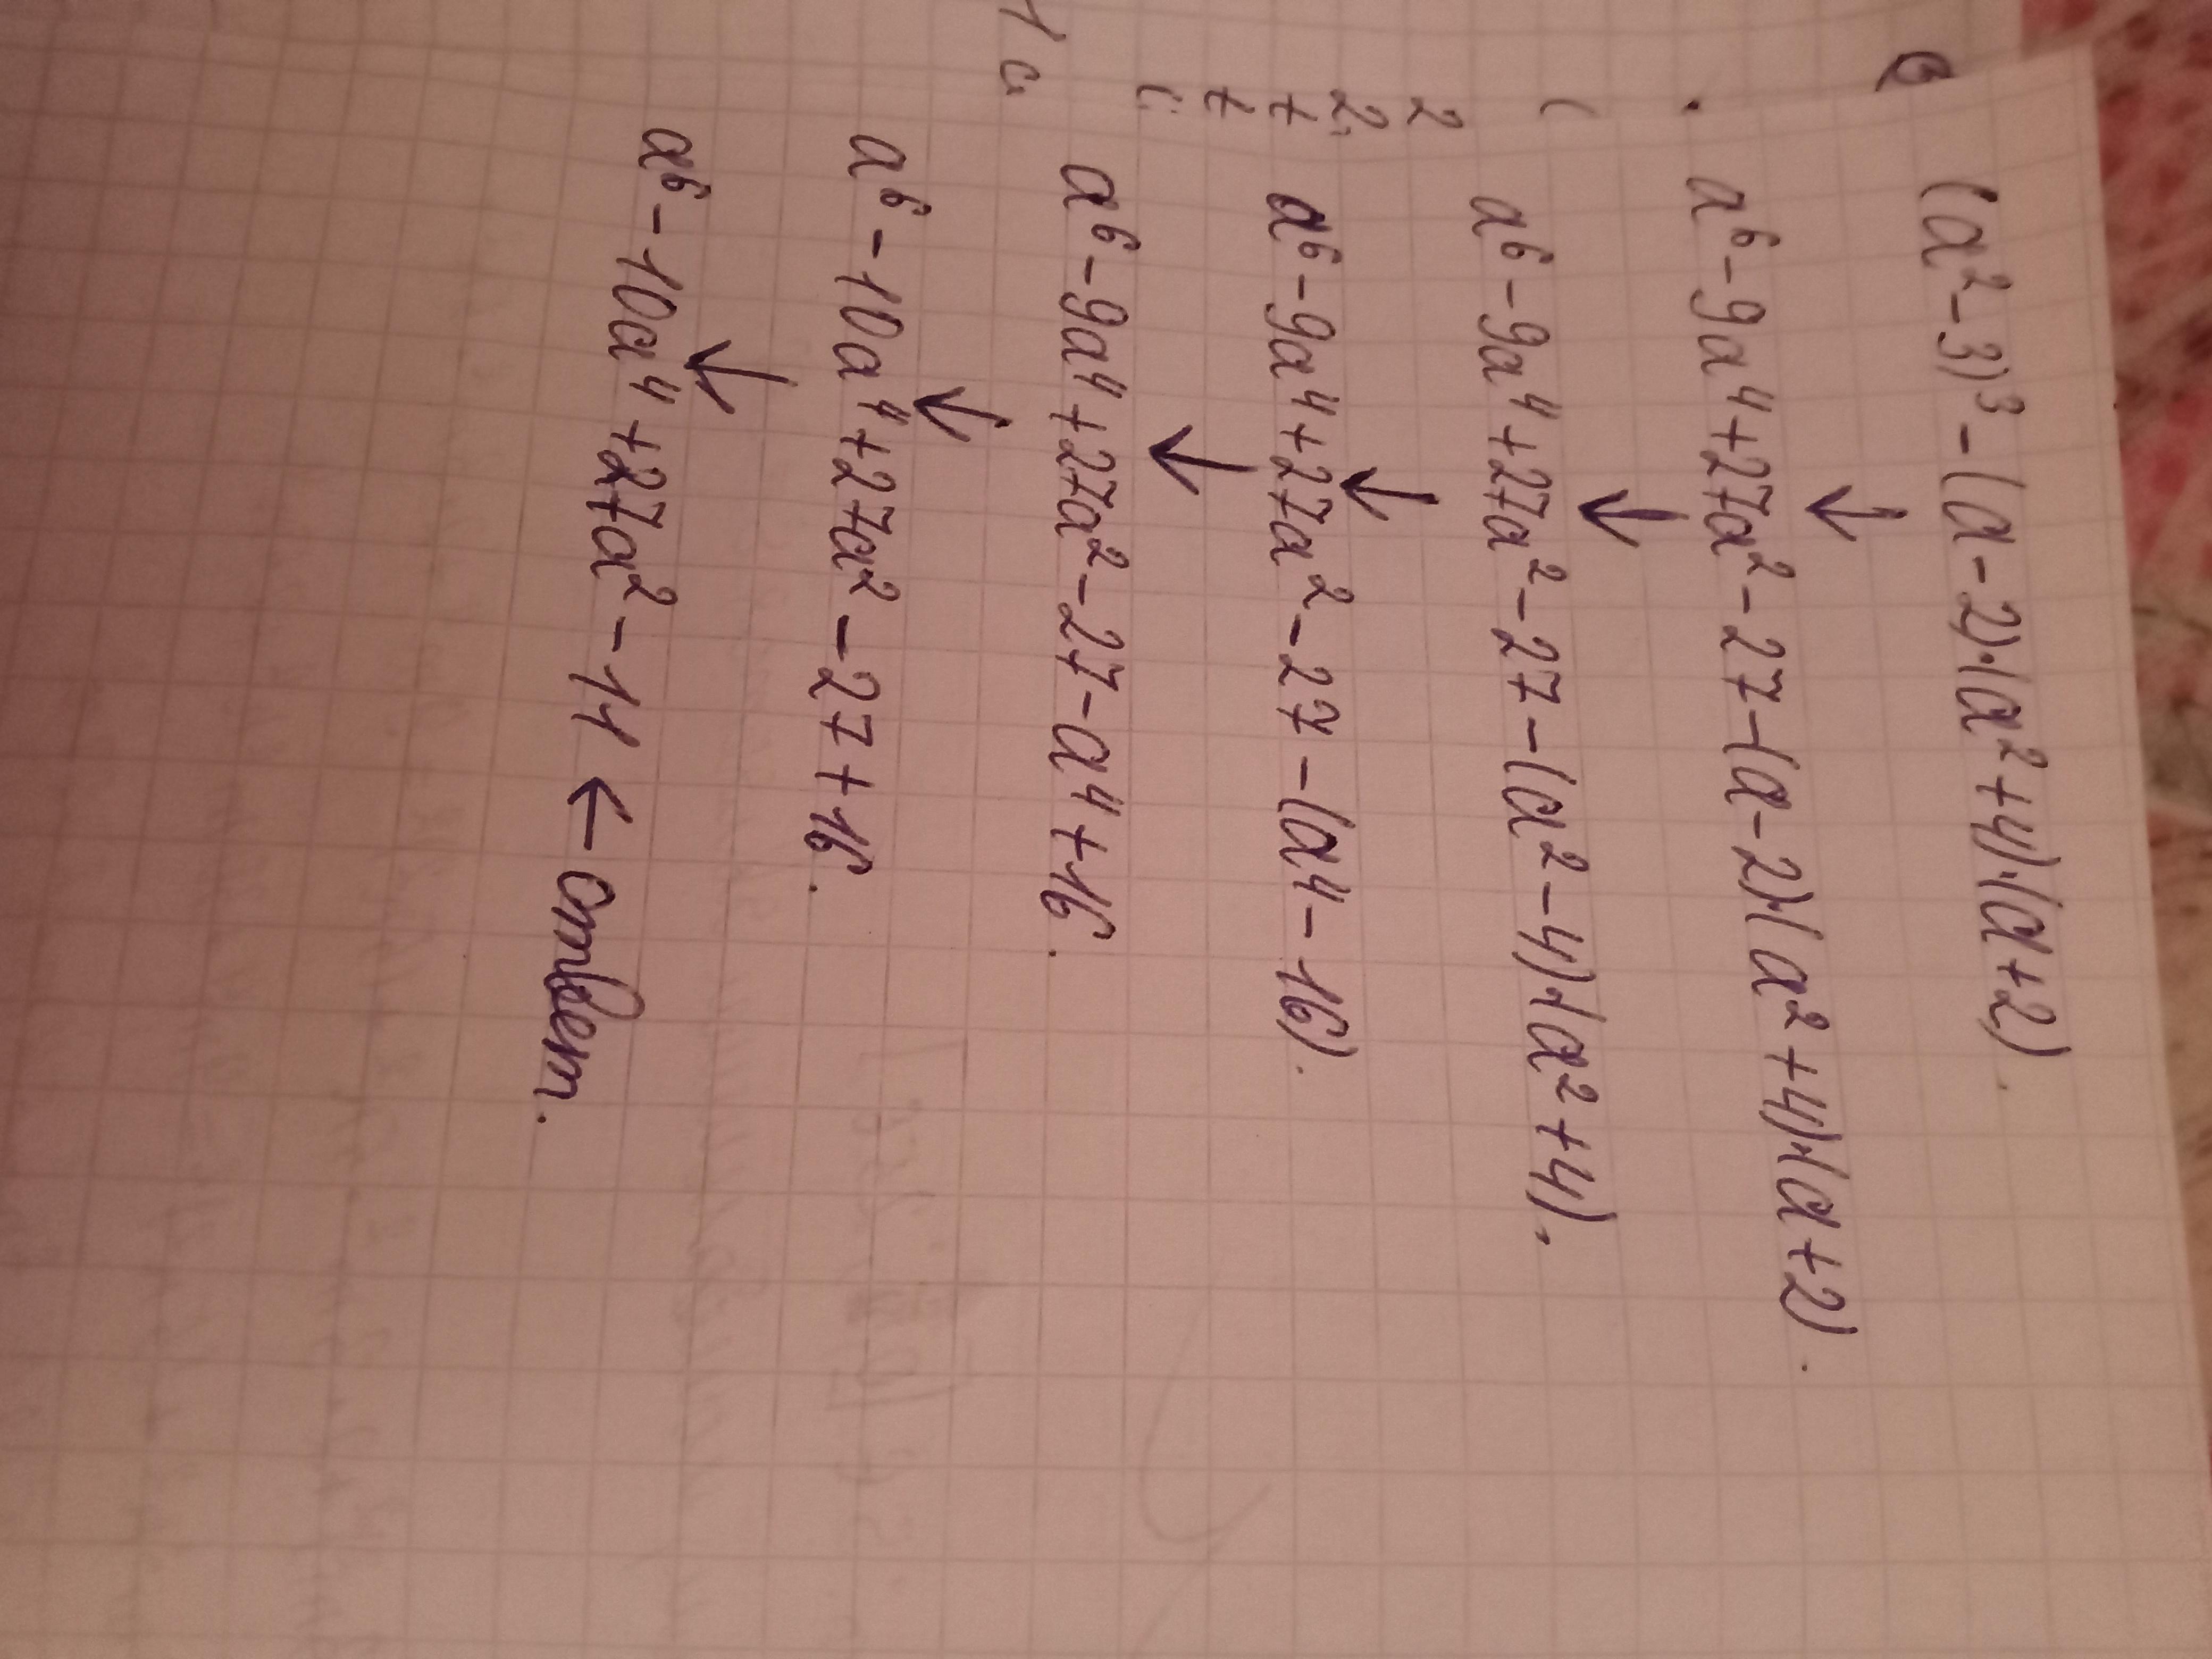 (a²-3)³-(a-2)·(a²+4)·(a+2).
↓
a⁶-9a⁴+27a²-27-(a-2)·(a²+4)·(a+2).
↓
a⁶-9a⁴+27a²-27-(a²-4)·(a²+4).
↓
a⁶-9a⁴+27a²-27-(a⁴-16).
↓
a⁶-9a⁴+27a²-27-a⁴+16.
↓
a⁶-10a⁴+27a²-27+16.
↓
a⁶-10a⁴+27a²-11 ← ответ.